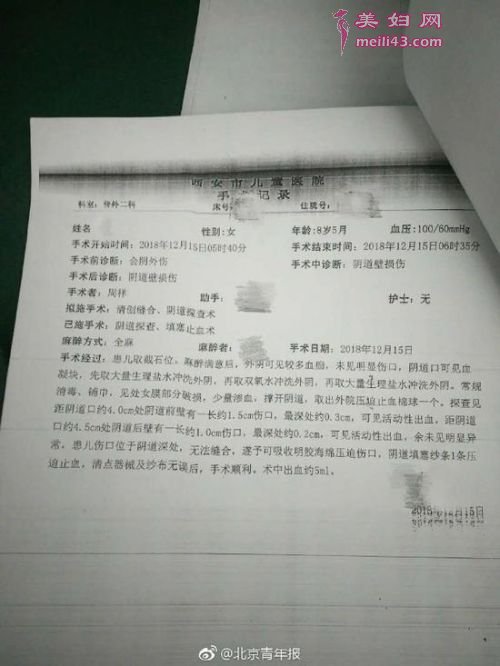 美妇网
meili43.com
西安市儿童医院
手术记录
科室: 骨外二科 床号: 住院号:
姓名 性别:女 年龄:8岁5月 血压:100/60mmHg
手术开始时间: 2018年12月15日05时40分 手术结束时间: 2018年12月15日06时35分
手术前诊断: 会阴外伤 手术中诊断: 阴道壁损伤
手术后诊断: 阴道壁损伤
手术者: 周祥 助手: 护士: 无
拟施手术: 清创缝合、阴道探查术
已施手术: 阴道探查、填塞止血术
麻醉方式: 全麻 麻醉者: 手术日期: 2018年12月15日
手术经过: 患儿取截石位。麻醉满意后,外阴可见较多血痂,未见明显伤口,阴道口可见血
凝块,先取大量生理盐水冲洗外阴,再取双氧水冲洗外阴,再取大量生理盐水冲洗外阴。常规
消毒、铺巾,见处女膜部分破损,少量渗血,撑开阴道,取出外院压迫止血棉球一个。探查见
距阴道口约4.0cm处阴道前壁有一长约1.5cm伤口,最深处约0.3cm,可见活动性出血,距阴道
口约4.5cm处阴道后壁有一长约1.0cm伤口,最深处约0.2cm,可见活动性出血,余未见明显异
常。患儿伤口位于阴道深处,无法缝合,遂予可吸收明胶海绵压迫伤口,阴道填塞纱条1条压
迫止血,清点器械及纱布无误后,手术顺利。术中出血约5ml。
@北京青年报